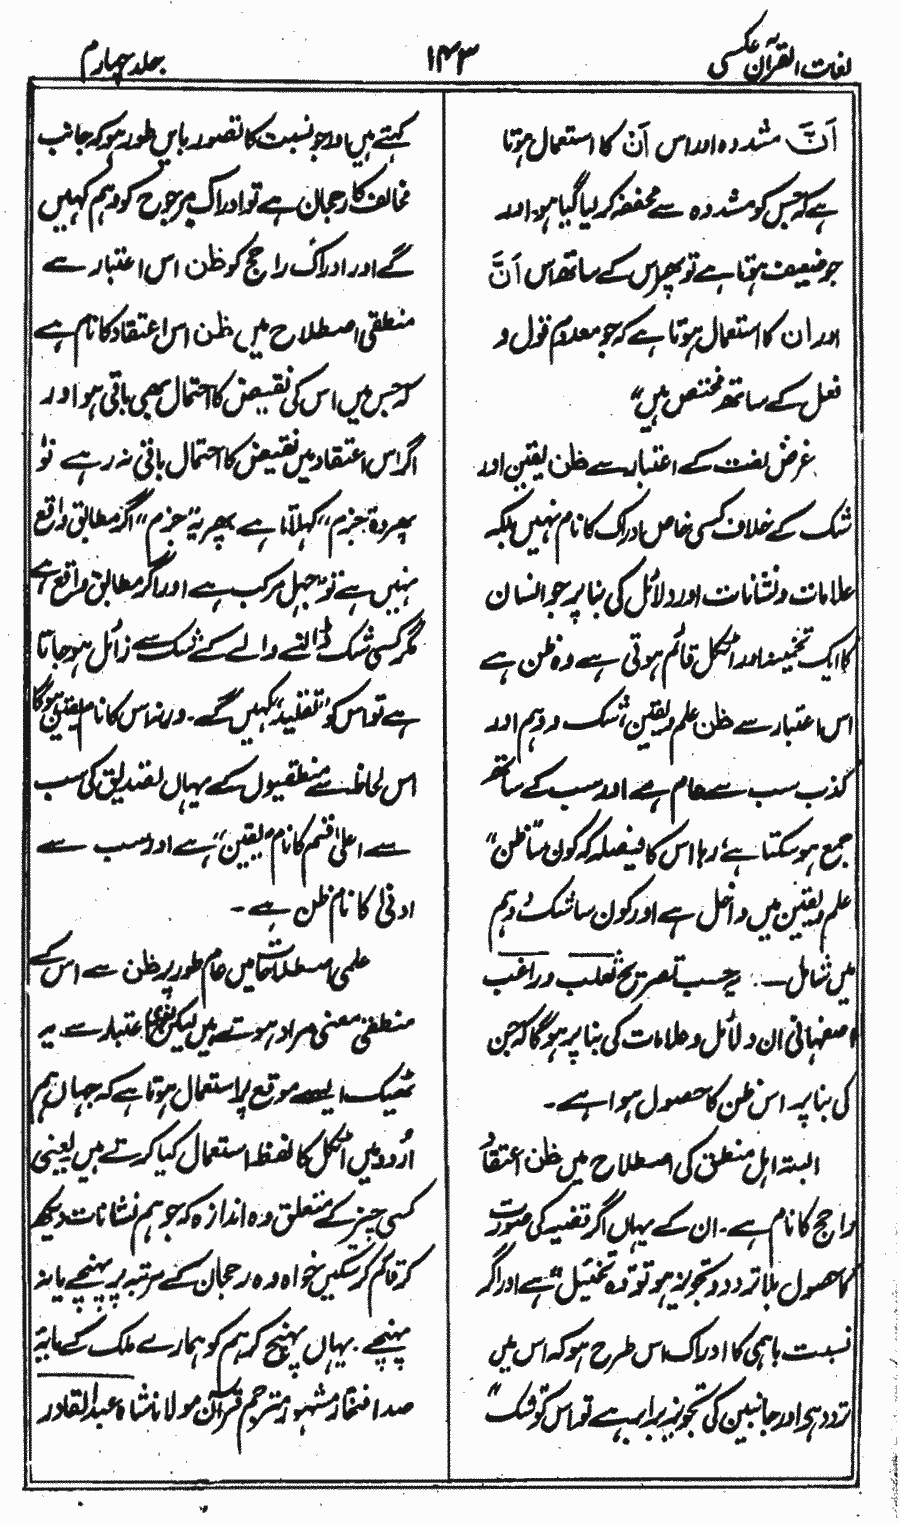 لغات القرآن عکسی
۱۴۳
جلد چہارم
اَنَّ مشددہ اور اس اَنْ کا استعمال ہوتا
ہے کہ جس کو مشددہ سے مخففہ کر لیا گیا ہو، اور
جو ضعیف ہوتا ہے تو پھر اس کے ساتھ اس اَنَّ
اور ان کا استعمال ہوتا ہے کہ جو معدوم قول و
فعل کے ساتھ مختص ہیں"
غرض لغت کے اعتبار سے ظن یقین اور
شک کے خلاف کسی خاص ادراک کا نام نہیں بلکہ
علامات و نشانات اور دلائل کی بنا پر جو انسان
کا ایک تخمینہ اور اٹکل قائم ہوتی ہے وہ ظن ہے
اس اعتبار سے ظن علم و یقین، شک و وہم اور
کذب سب سے عام ہے اور سب کے ساتھ
جمع ہو سکتا ہے، رہا اس کا فیصلہ کہ کون سا "ظن"
علم و یقین میں داخل ہے اور کون سا شک و وہم
میں شامل — یہ حسب تصریح ثعلب و راغب
اصفہانی ان دلائل و علامات کی بنا پر ہوگا کہ جن
کی بنا پر اس ظن کا حصول ہوا ہے۔
البتہ اہل منطق کی اصطلاح میں ظن اعتقاد
راجح کا نام ہے۔ ان کے یہاں اگر قضیہ کی صورت
کا حصول بلا تردد و تجویز ہو تو وہ "تخئیل" ہے اور اگر
نسبت باہمی کا ادراک اس طرح ہو کہ اس میں
تردد ہو اور جانبین کی تجویز برابر ہے تو اس کو شک"
کہتے ہیں اور جو نسبت کا تصور بایں طور ہو کہ جانب
مخالف کا رجحان ہے تو ادراک مرجوح کو وہم کہیں
گے اور ادراک راجح کو ظن اس اعتبار سے
منطقی اصطلاح میں ظن اس اعتقاد کا نام ہے
کہ جس میں اس کی نقیض کا احتمال بھی باقی ہو اور
اگر اس اعتقاد میں نقیض کا احتمال باقی نہ رہے تو
پھر وہ "جزم" کہلاتا ہے پھر یہ "جزم" اگر مطابق واقع
نہیں ہے تو "جہل مرکب ہے اور اگر مطابق واقع ہے
مگر کسی شک ڈالنے والے کے شک سے زائل ہو جاتا
ہے تو اس کو "تقلید" کہیں گے۔ ورنہ اس کا نام یقین ہوگا
اس لحاظ سے منطقیوں کے یہاں تصدیق کی سب
سے اعلیٰ قسم کا نام "یقین" ہے اور سب سے
ادنیٰ کا نام ظن ہے۔
علمی اصطلاحات میں عام طور پر ظن سے اس کے
منطقی معنی مراد ہوتے ہیں لیکن لغوی اعتبار سے یہ
ٹھیک ایسے موقع پر استعمال ہوتا ہے کہ جہاں ہم
اُردو میں اٹکل کا لفظ استعمال کیا کرتے ہیں یعنی
کسی چیز کے متعلق وہ اندازہ کہ جو ہم نشانات دیکھ
کر قائم کر سکیں خواہ وہ رجحان کے مرتبہ پر پہنچے یا نہ
پہنچے۔ یہاں پہنچ کر ہم کو ہمارے ملک کے مایۂ
صد افتخار مشہور مترجم قرآن مولانا شاہ عبدالقادر